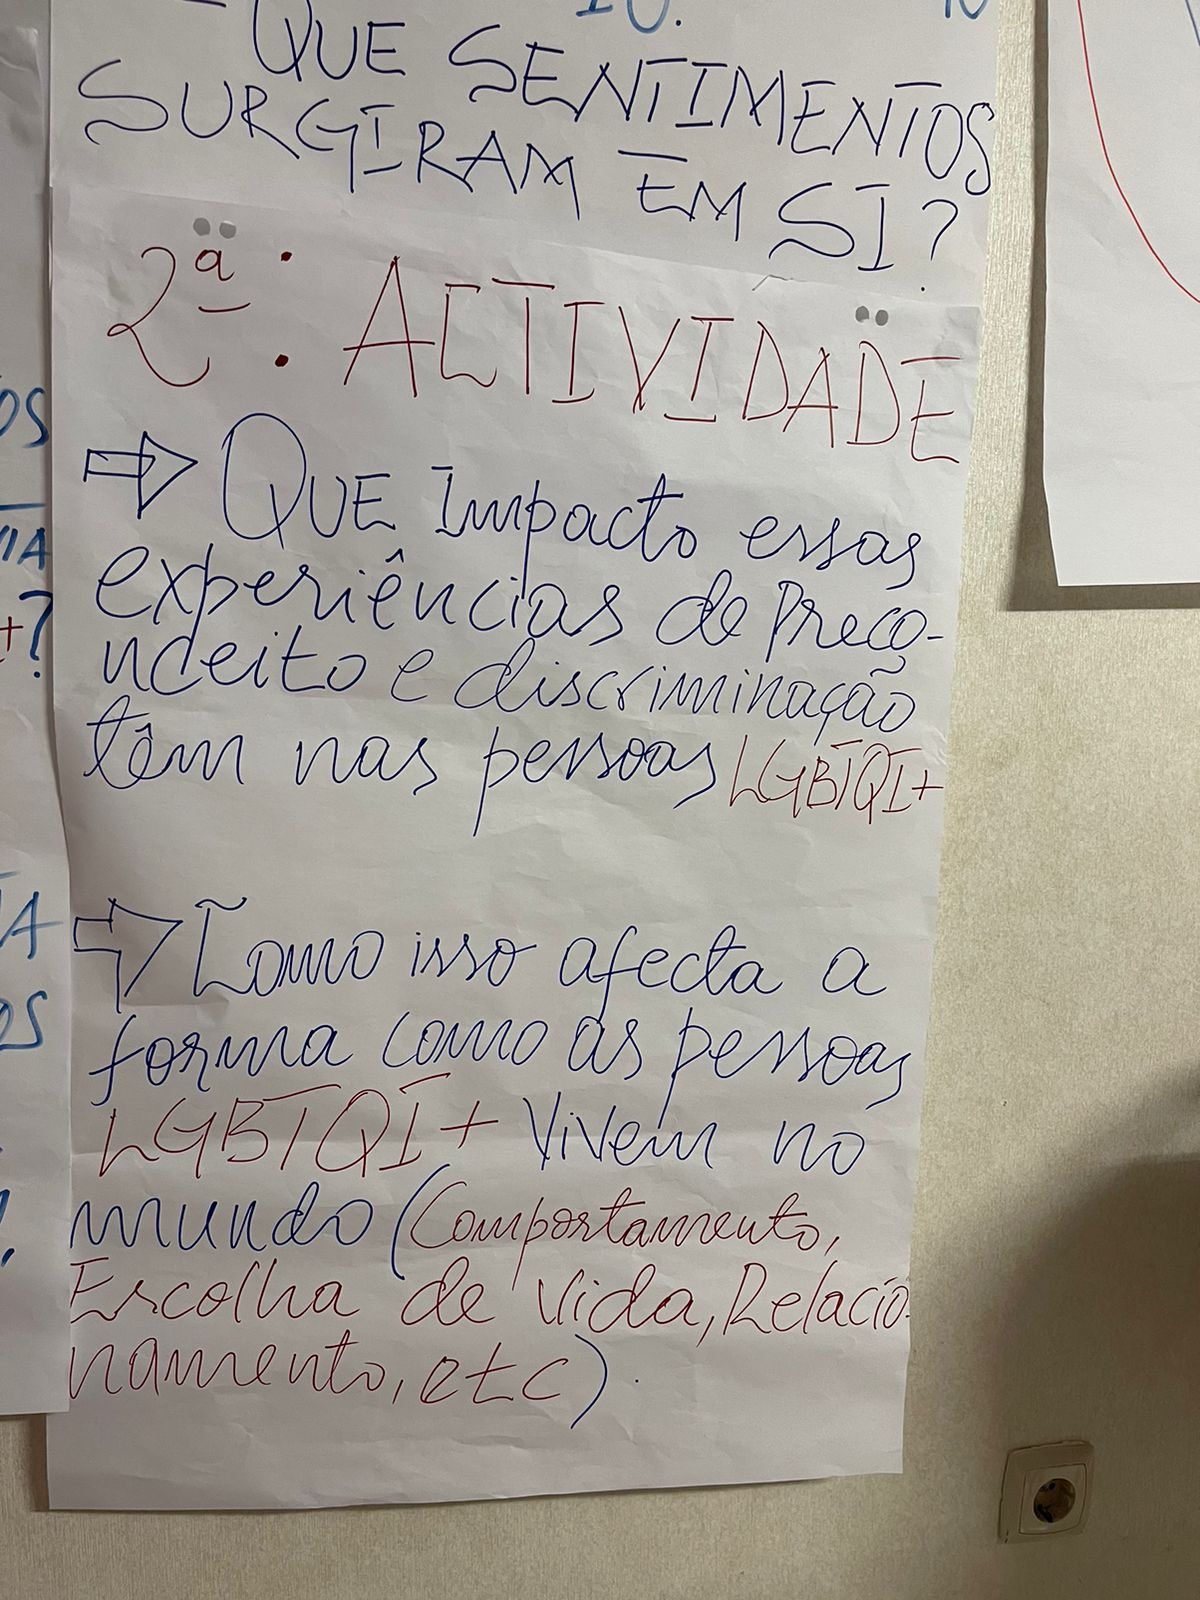 QUE SENTIMENTOS
SURGIRAM EM SI?
2ª: ACTIVIDADE
QUE Impacto essas
experiências de Preco-
nceito e discriminação
têm nas pessoas LGBTQI+
Como isso afecta a
forma como as pessoas
LGBTQI+ Vivem no
mundo (Comportamento,
Escolha de Vida, Relacio-
namento, etc).
OS
+?
OS